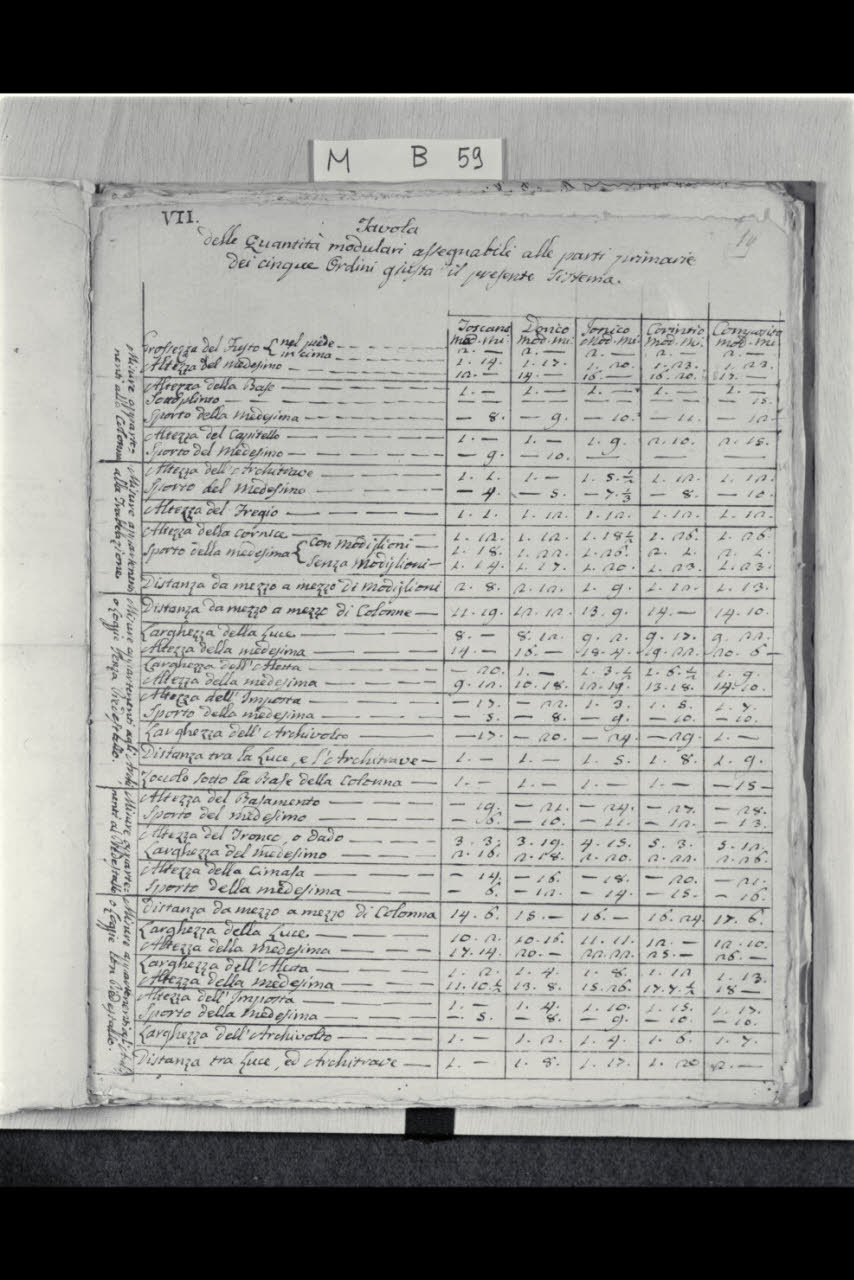 M B 59
VII.
19
Tavola
delle Quantità modulari assegnabili alle parti primarie
dei cinque Ordini giusta il presente Sistema.
Toscano Dorico Jonico Corintio Composito
mod. mi. mod. mi. mod. mi. mod. mi. mod. mi.
Grossezza del Fusto { nel piede 2. — 2. — 2. — 2. — 2. —
in cima 1. 14. 1. 17. 1. 20. 1. 23. 1. 23.
Altezza del medesimo 12. — 14. — 16. 16. 20. 17. —
Altezza della Base 1. — 1. — 1. — 1. — 1. —
Sottoplinto — 15.
Sporto della Medesima — 8. — 9. — 10. — 11. — 12.
Altezza del Capitello 1. — 1. — 1. 9. 2. 10. 2. 15.
Sporto del Medesimo — 9. — 10. — — —
Altezza dell'Architrave 1. 1. 1. — 1. 5. ½ 1. 12. 1. 12.
Sporto del Medesimo — 4. — 5. — 7. ½ — 8. — 10.
Altezza del Fregio 1. 1. 1. 12. 1. 12. 1. 12. 1. 12.
Altezza della Cornice 1. 12. 1. 12. 1. 18 ½ 1. 26. 1. 26.
Sporto della medesima { Con Modiglioni 1. 18. 1. 22. 1. 26. 2. 1. 2. 1.
Senza Modiglioni 1. 14. 1. 17. 1. 20. 1. 23. 1. 23.
Distanza da mezzo a mezzo di Modiglioni 2. 8. 2. 12. 1. 9. 1. 12. 1. 13.
Distanza da mezzo a mezzo di Colonne 11. 19. 12. 12. 13. 9. 14. — 14. 10.
Larghezza della Luce 8. — 8. 12. 9. 2. 9. 17. 9. 22.
Altezza della medesima 14. — 16. — 18. 4. 19. 22. 20. 6 —
Larghezza dell'Aletta — 20. 1. — 1. 3. ½ 1. 6. ½ 1. 9.
Altezza della medesima 9. 12. 10. 18. 12. 19. 13. 18. 14. 10.
Altezza dell'Imposta — 17. — 22. 1. 3. 1. 5. 1. 7.
Sporto della medesima — 5. — 8. — 9. — 10. — 10.
Larghezza dell'Archivolto — 17. — 20. — 24. — 29. 1. —
Distanza tra la Luce, e l'Architrave 1. — 1. — 1. 5. 1. 8. 1. 9.
Zoccolo sotto la Base della Colonna 1. — 1. — 1. — 1. — — 15 —
Altezza del Basamento — 19. — 21. — 24. — 27. — 28.
Sporto del medesimo — 10. — 11. — 12. — 13.
Altezza del Tronco, o Dado 3. 3. 3. 19. 4. 15. 5. 3. 5. 12.
Larghezza del medesimo 2. 16. 2. 18. 2. 20. 2. 22. 2. 26.
Altezza della Cimasa — 14. — 16. — 18. — 20. — 21.
Sporto della medesima — 6. — 12. — 14. — 15. — 16.
Distanza da mezzo a mezzo di Colonna 14. 6. 15. — 16. — 16. 24. 17. 6.
Larghezza della Luce 10. 2. 10. 16. 11. 11. 12. — 12. 10.
Altezza della Medesima 17. 14. 20. — 22. 22. 25. — 26. —
Larghezza dell'Aletta 1. 2. 1. 4. 1. 8. 1. 12 1. 13.
Altezza della medesima 11. 10. ½ 13. 8. 15. 26. 17. 7. ½ 18 —
Altezza dell'Imposta 1. — 1. 4. 1. 10. 1. 15. 1. 17.
Sporto della Medesima — 5. — 8. — 9. — 10. — 10.
Larghezza dell'Archivolto 1. — 1. 2. 1. 4. 1. 6. 1. 7.
Distanza tra Luce, ed Architrave 1. — 1. 8. 1. 17. 1. 20 2. —
Misure apparte-
nenti alla Colonna
Misure appartenen-
ti alla Trabeazione
Misure appartenenti agli Archi
o Logge senza Piedestallo.
Misure apparte-
nenti al Piedestallo
Misure appartenenti agli Archi
o Logge con Piedestallo.